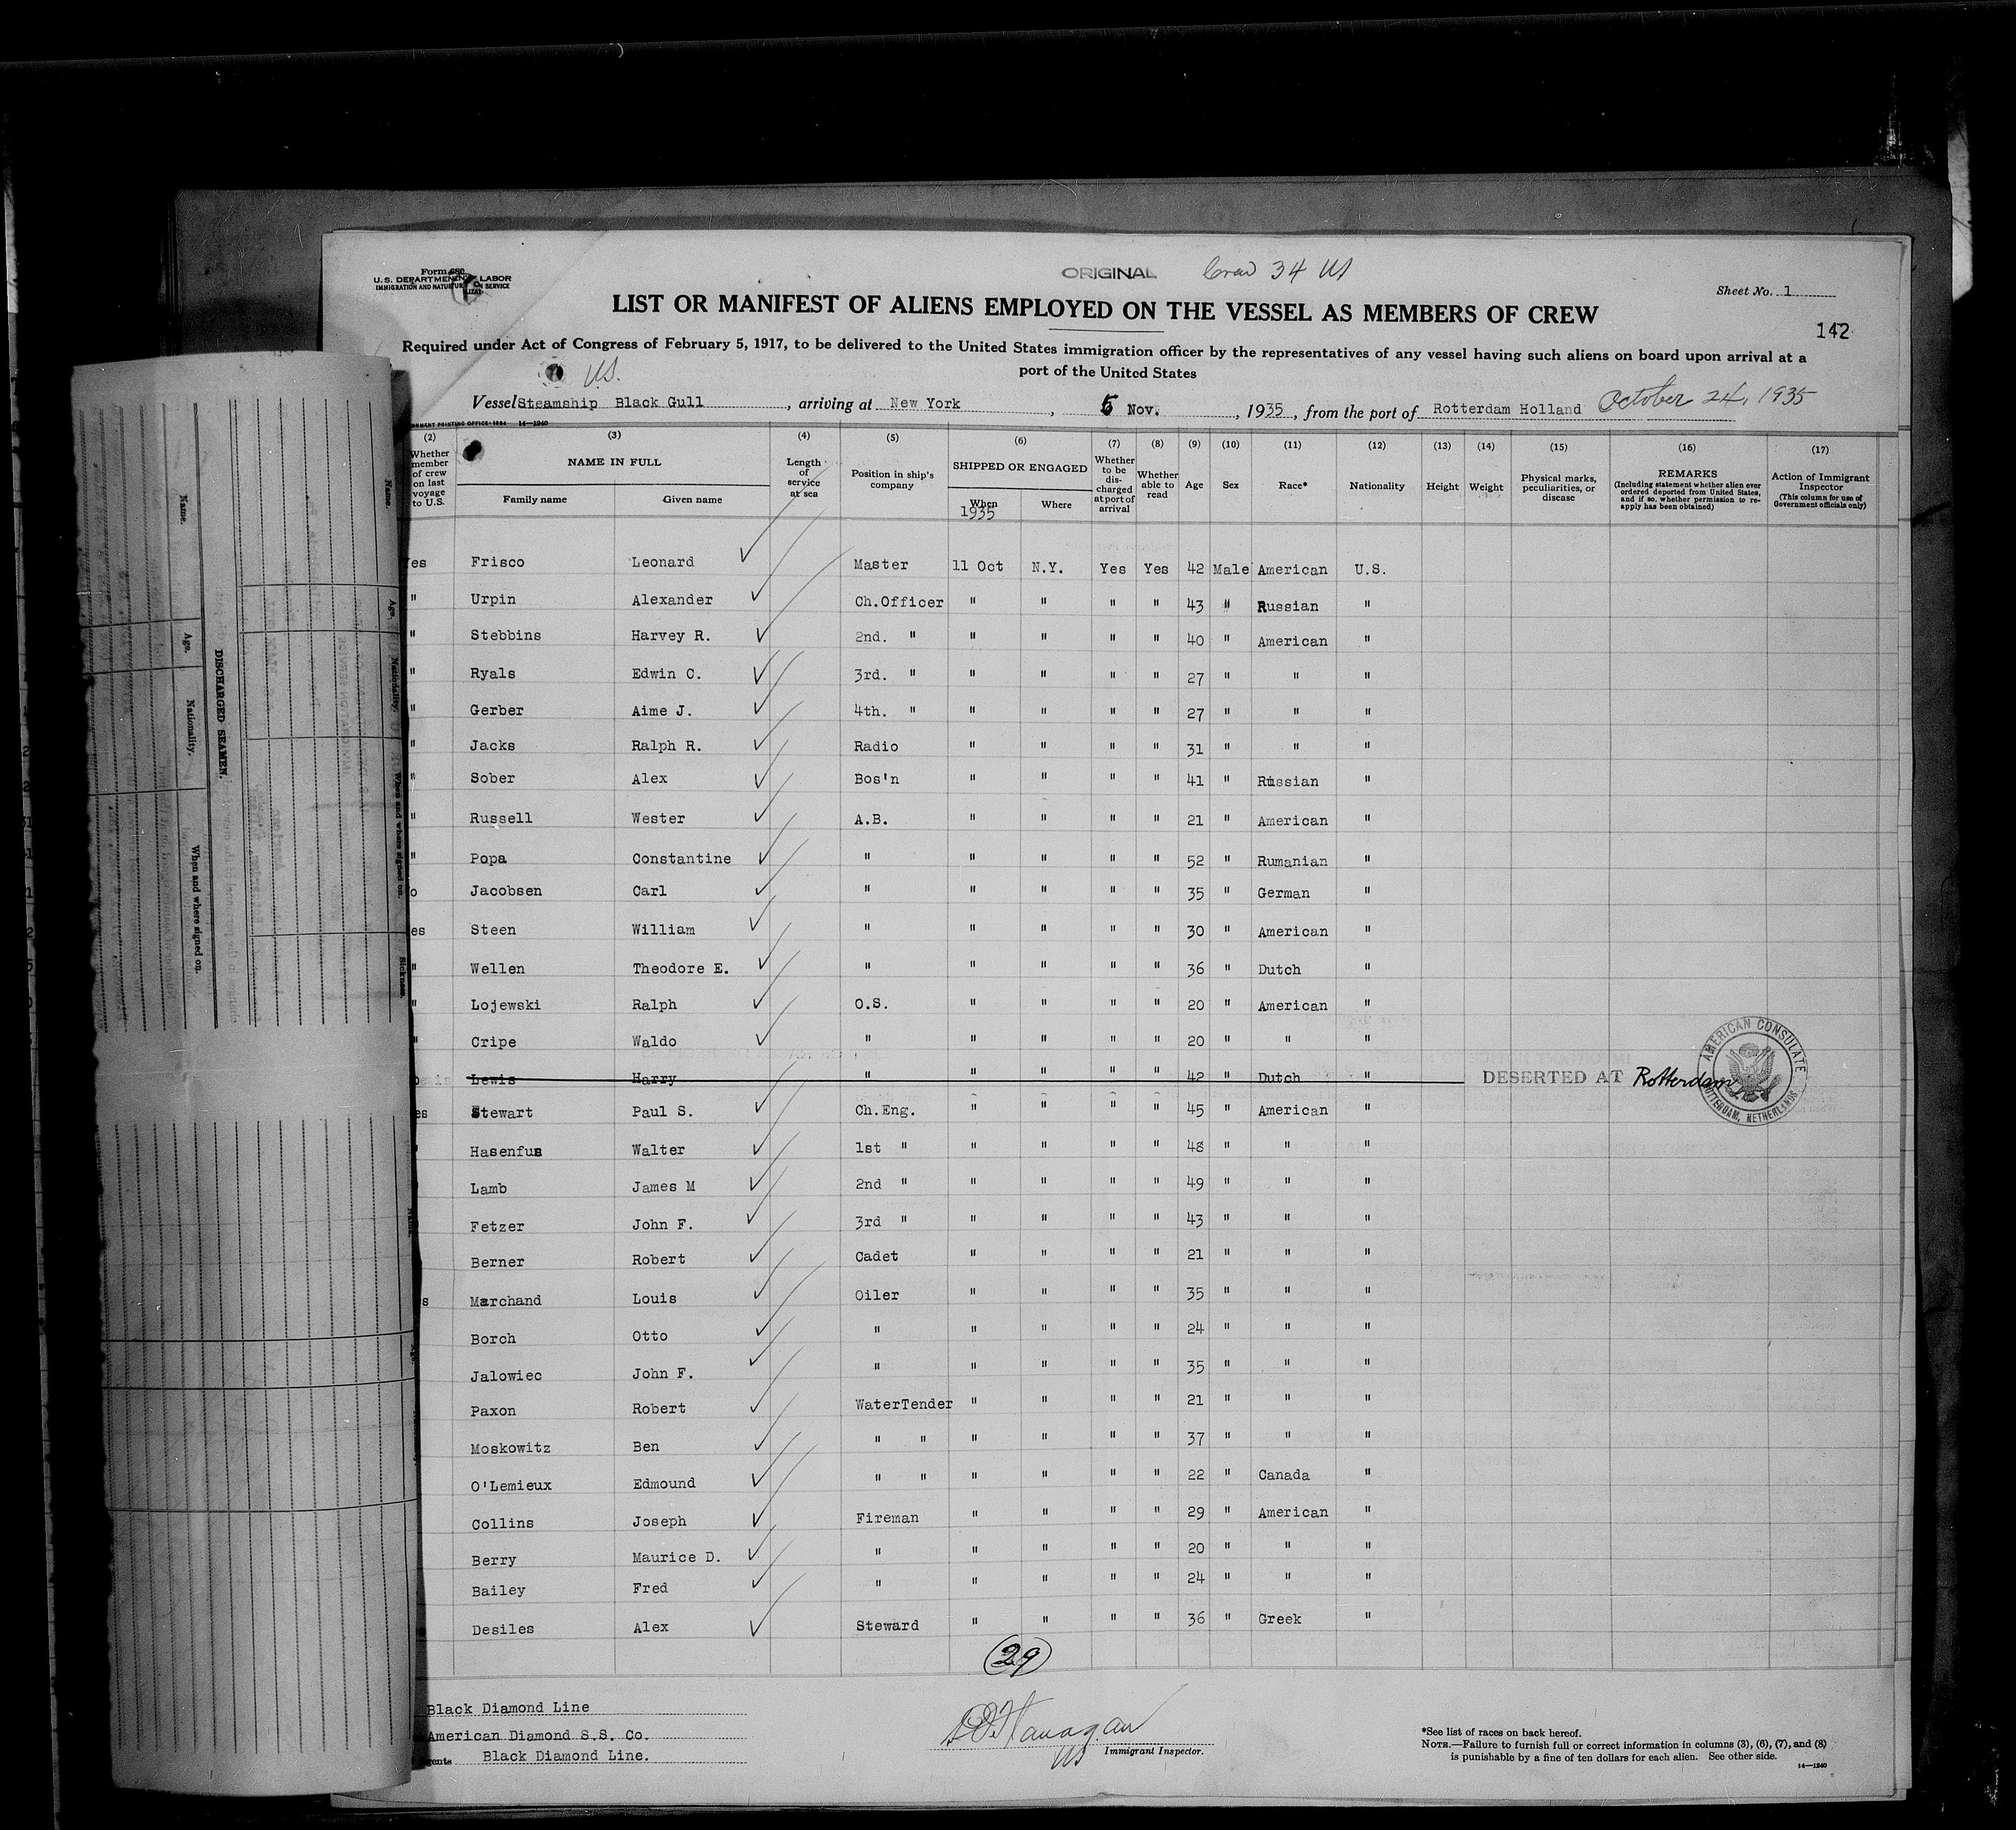 Form 680
U.S. DEPARTMENT OF LABOR
IMMIGRATION AND NATURALIZATION SERVICE
ORIGINAL Crew 34 US
Sheet No. 1
LIST OR MANIFEST OF ALIENS EMPLOYED ON THE VESSEL AS MEMBERS OF CREW
142
Required under Act of Congress of February 5, 1917, to be delivered to the United States immigration officer by the representatives of any vessel having such aliens on board upon arrival at a
port of the United States
U.S.
Vessel Steamship Black Gull, arriving at New York, 5 Nov., 1935, from the port of Rotterdam Holland October 24, 1935
14—1240
(2) (3) (4) (5) (6) (7) (8) (9) (10) (11) (12) (13) (14) (15) (16) (17)
Whether member of crew on last voyage to U.S.
NAME IN FULL
Family name Given name
Length of service at sea
Position in ship's company
SHIPPED OR ENGAGED
When Where
1935
Whether to be discharged at port of arrival
Whether able to read
Age
Sex
Race*
Nationality
Height
Weight
Physical marks, peculiarities, or disease
REMARKS
(Including statement whether alien ever ordered deported from United States, and if so, whether permission to reapply has been obtained)
Action of Immigrant Inspector
(This column for use of Government officials only)
Yes Frisco Leonard Master 11 Oct N.Y. Yes Yes 42 Male American U.S.
" Urpin Alexander Ch.Officer " " " " 43 " Russian "
" Stebbins Harvey R. 2nd. " " " " " 40 " American "
" Ryals Edwin C. 3rd. " " " " " 27 " " "
" Gerber Aime J. 4th. " " " " " 27 " " "
" Jacks Ralph R. Radio " " " " 31 " " "
" Sober Alex Bos'n " " " " 41 " Russian "
" Russell Wester A.B. " " " " 21 " American "
" Popa Constantine " " " " " 52 " Rumanian "
o Jacobsen Carl " " " " " 35 " German "
es Steen William " " " " " 30 " American "
" Wellen Theodore E. " " " " " 36 " Dutch "
" Lojewski Ralph O.S. " " " " 20 " American "
" Cripe Waldo " " " " " 20 " " "
Lewis Harry " " " " " 42 " Dutch " DESERTED AT Rotterdam
AMERICAN CONSULATE
ROTTERDAM, NETHERLANDS
es Stewart Paul S. Ch.Eng. " " " " 45 " American "
" Hasenfus Walter 1st " " " " " 48 " " "
Lamb James M 2nd " " " " " 49 " " "
Fetzer John F. 3rd " " " " " 43 " " "
Berner Robert Cadet " " " " 21 " " "
s Marchand Louis Oiler " " " " 35 " " "
Borch Otto " " " " " 24 " " "
Jalowiec John F. " " " " " 35 " " "
Paxon Robert WaterTender " " " " 21 " " "
Moskowitz Ben " " " " " " 37 " " "
O'Lemieux Edmound " " " " " " 22 " Canada "
Collins Joseph Fireman " " " " 29 " American "
Berry Maurice D. " " " " " 20 " " "
Bailey Fred " " " " " 24 " " "
Desiles Alex Steward " " " " 36 " Greek "
29
Black Diamond Line
American Diamond S.S. Co.
gents Black Diamond Line.
US
Immigrant Inspector.
*See list of races on back hereof.
NOTE.—Failure to furnish full or correct information in columns (3), (6), (7), and (8)
is punishable by a fine of ten dollars for each alien. See other side.
14—1240
DISCHARGED SEAMEN.
Name.
Age.
Nationality.
When and where signed on.
Name.
Age.
Nationality.
When and where signed on.
Sickness.